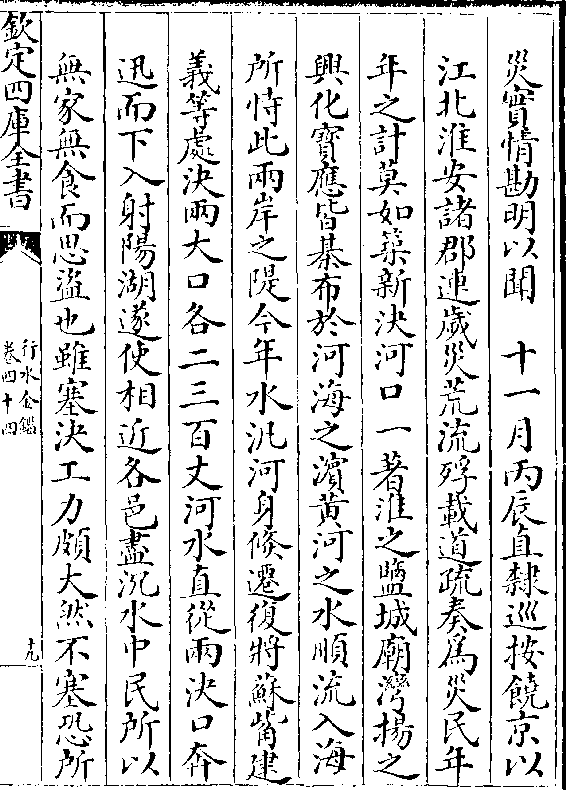 災實情勘明以聞　十一月丙辰直隸巡按饒京以
江北淮安諸郡連歲災荒流殍載道疏奏為災民年
年之計莫如築新決河口一著淮之鹽城廟灣揚之
興化寶應皆棊布於河海之濵黄河之水順流入海
所恃此兩岸之隄今年水汎河身倐遷復將蘇觜建
義等處決兩大口各二三百丈河水直從兩決口奔
迅而下入射陽湖遂使相近各邑盡沉水中民所以
無家無食而思盜也雖塞決工力頗大然不塞恐所
欽定四庫全書
行水金鑑
卷四十四
十九